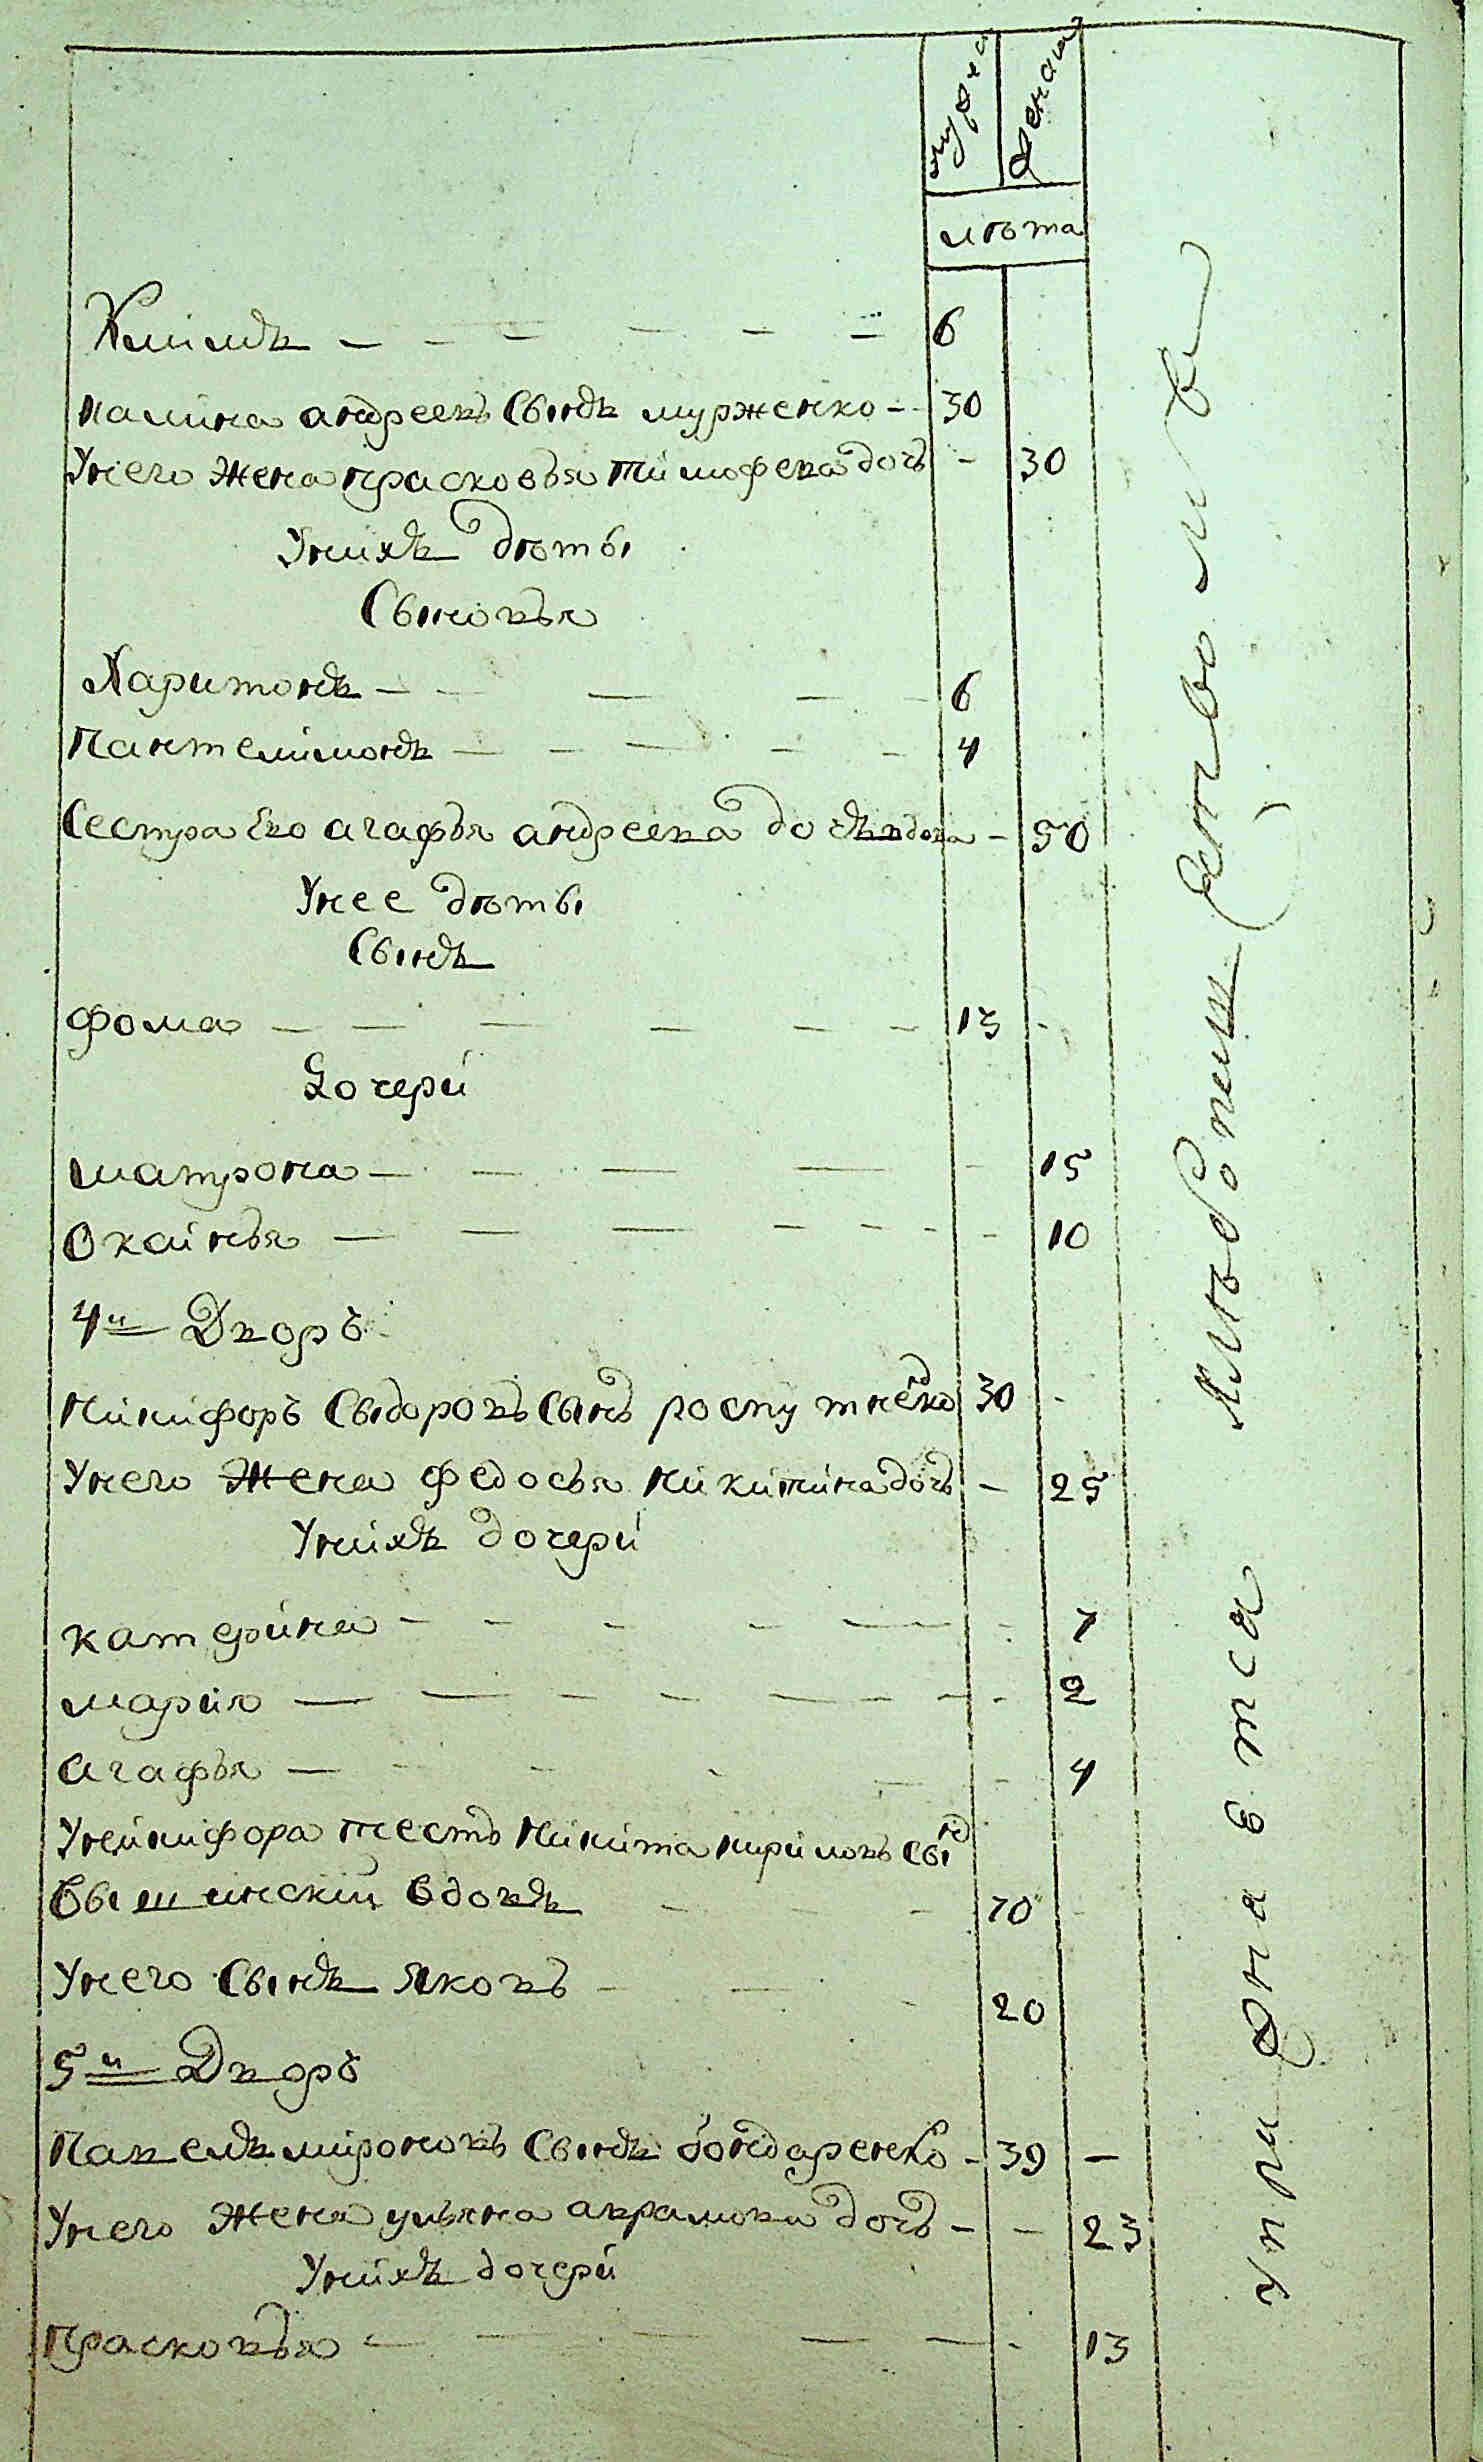 мужеска
женска
лѣта
Климъ — — — — — — 6
калина андреевъ Сынъ мурженко - - 30
Унего жена прасковья тимофева дочь - 30
Унихъ дѣты
Сыновья
Харитонъ — — — — 6
Пантелимонъ — — — — — 4
Сестра Ево агафья андреева дочь вдова - 50
Унее дѣты
Сынъ
фома — — — — — — 13 -
Дочери
матрона — — — — - 15
Окси́нья — — — — — - - 10
4й Дворъ
Никифоръ Сыдоровъ Сынъ 30 -
Унего Жена федосья Никитина дочъ - 25
Унихъ дочери
катерина — — — — — - 7
мария — — — — — — — - 2
агафья — — — — — - 4
Уникифора тесть Никита кириловъ Сынъ
вдовъ — — — 70
Унего Сынъ яковъ — — - 20
5й Дворъ
Павелъ мироновъ Сынъ бондаренко - 39 —
Унего Жена ульяна аврамова дочъ - - 23
Унихъ дочери
Прасковья — — — — — - 13